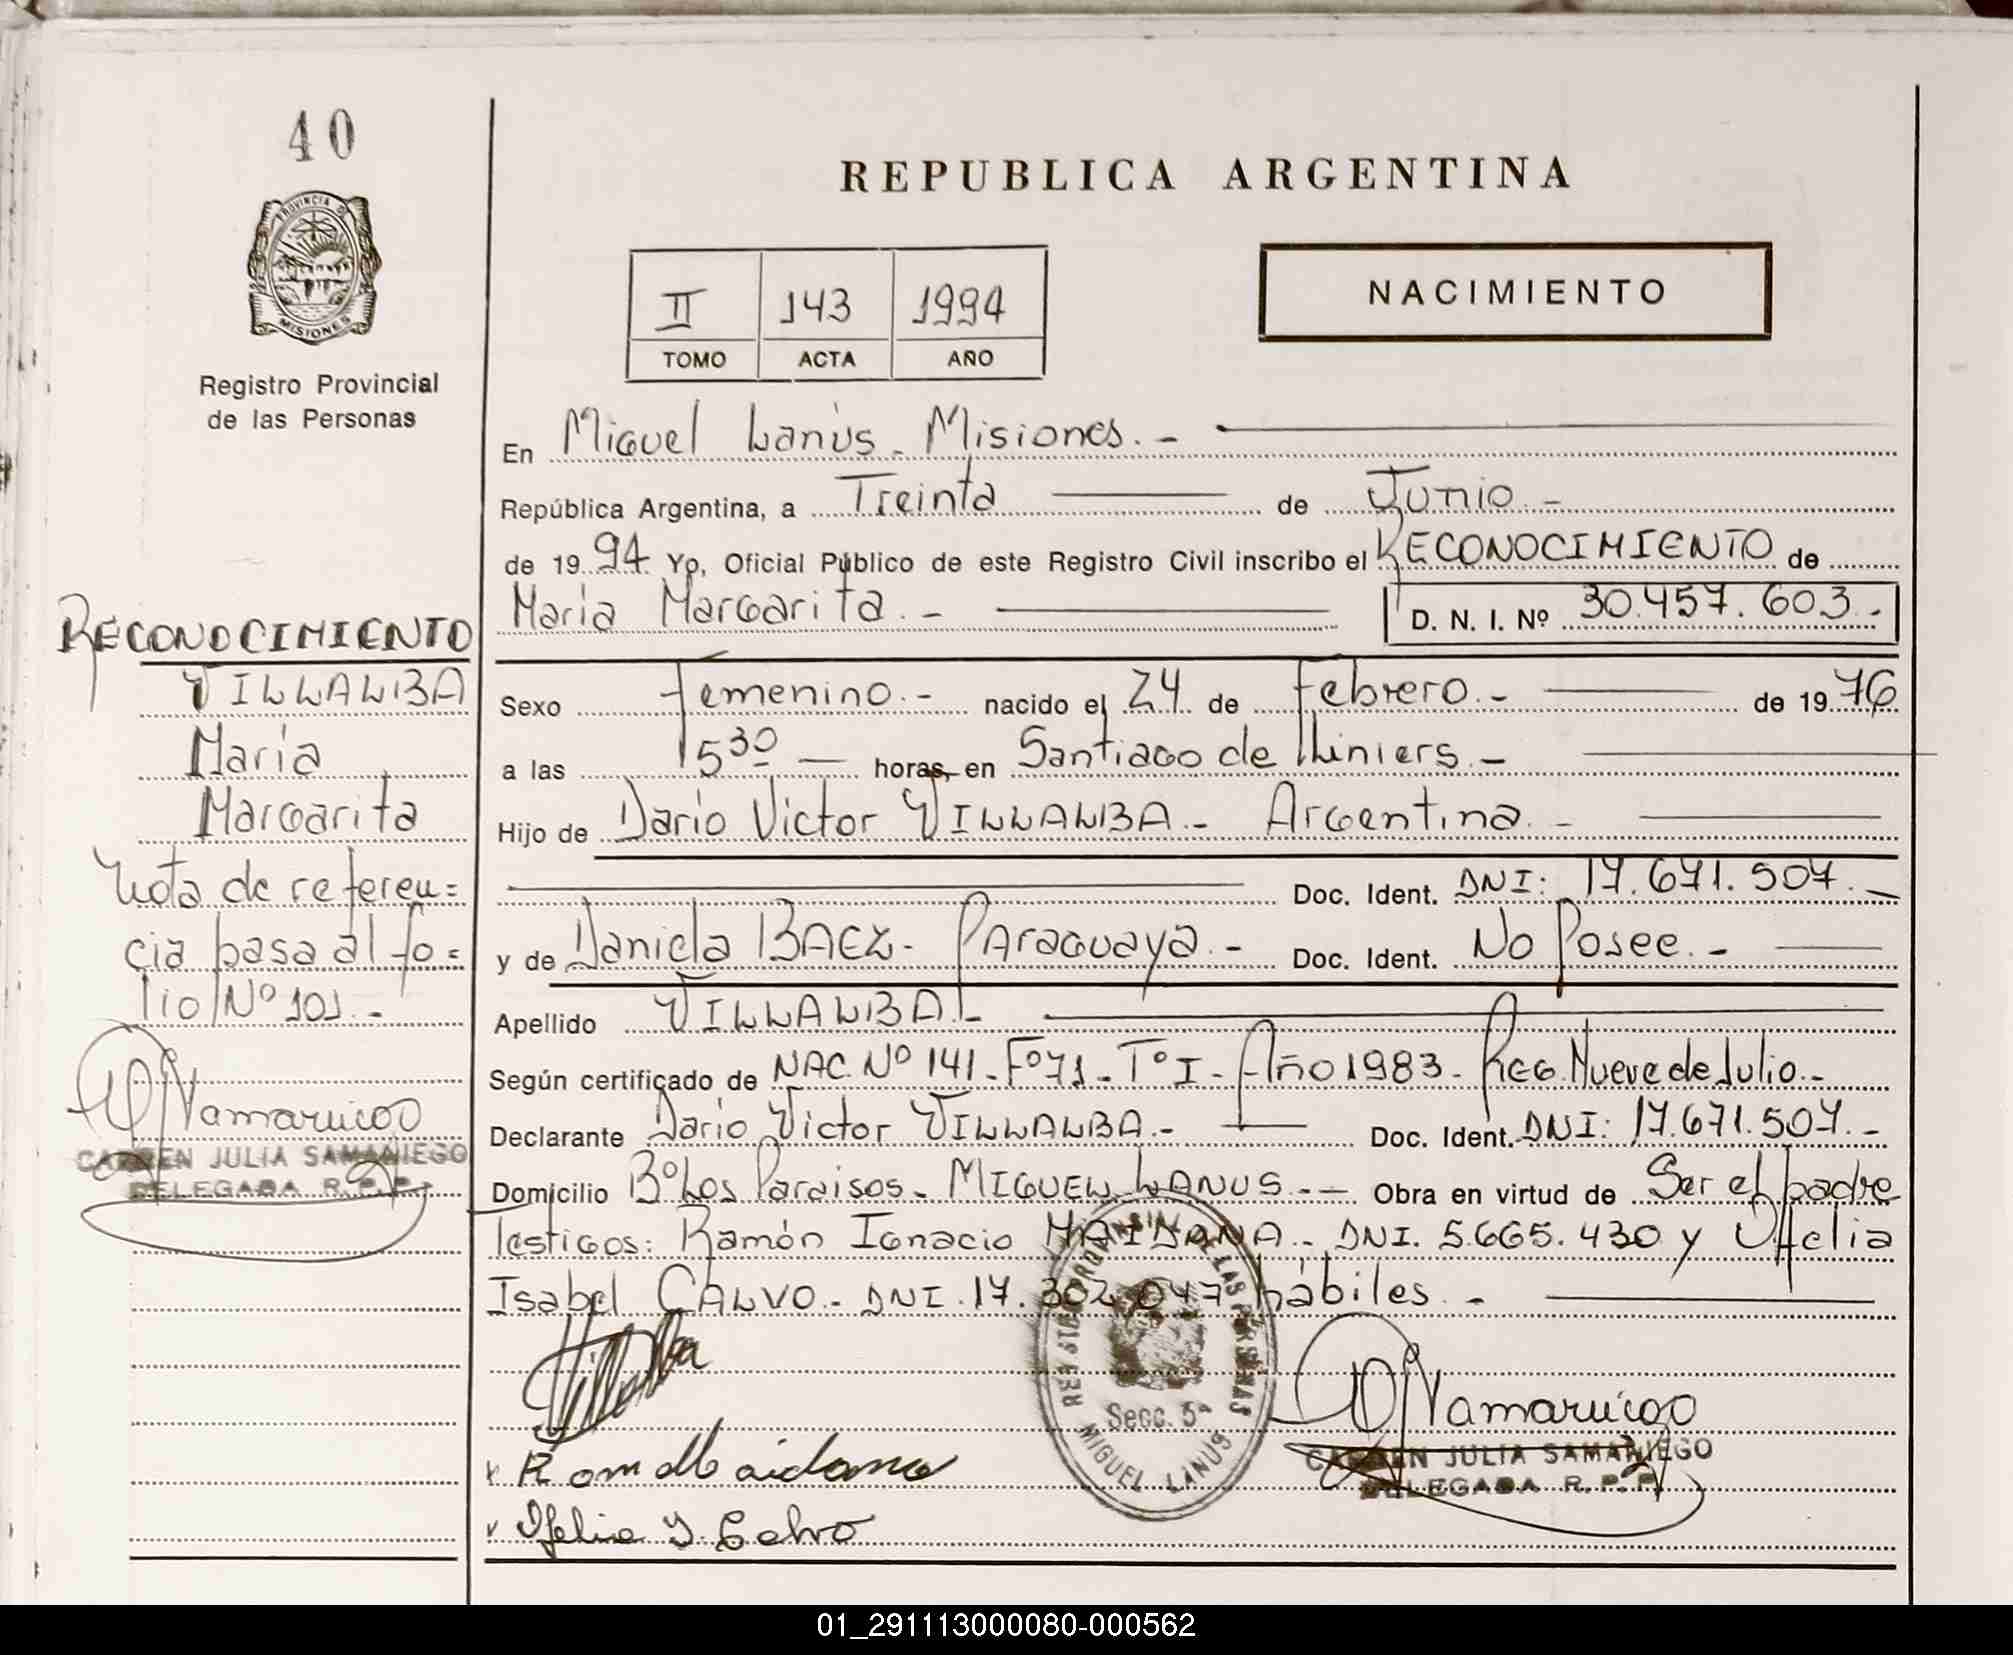 40
PROVINCIA DE
MISIONES
Registro Provincial
de las Personas
REPUBLICA ARGENTINA
II 143 1994
TOMO ACTA AÑO
NACIMIENTO
En Miguel Lanús - Misiones. -
República Argentina, a Treinta de Junio -
de 19 94 Yo, Oficial Público de este Registro Civil inscribo el RECONOCIMIENTO de
María Margarita. - D. N. I. Nº 30.457.603.
Sexo Femenino. - nacido el 24 de Febrero. - de 19 76
a las 15 30 horas, en Santiago de Lliniers. -
Hijo de Darío Victor VILLALBA. - Argentina. -
Doc. Ident. DNI: 17.671.507. -
y de Daniela BAEZ - Paraguaya. - Doc. Ident. No Posee. -
Apellido VILLALBA. -
Según certificado de NAC. Nº 141 - Fº 71 - Tº I - Año 1983 - Reg. Nueve de Julio. -
Declarante Darío Victor VILLALBA. - Doc. Ident. DNI: 17.671.507. -
Domicilio Bº Los Paraisos - MIGUEL LANUS. - Obra en virtud de Ser el padre
Testigos: Ramón Ignacio MAIDANA - DNI. 5.665.430 y Offelia
Isabel CALVO - DNI. 17.302.047 hábiles. -
Villalba
Ram Maidana
Ofelia I. Calvo
REGISTRO PROVINCIAL DE LAS PERSONAS
Secc. 5ª
MIGUEL LANUS
CARMEN JULIA SAMANIEGO
DELEGADA R. P. P.
RECONOCIMIENTO
VILLALBA
María
Margarita
Nota de referen=
cia pasa al fo=
lio Nº 101. -
CARMEN JULIA SAMANIEGO
DELEGADA R. P. P.
01_291113000080-000562